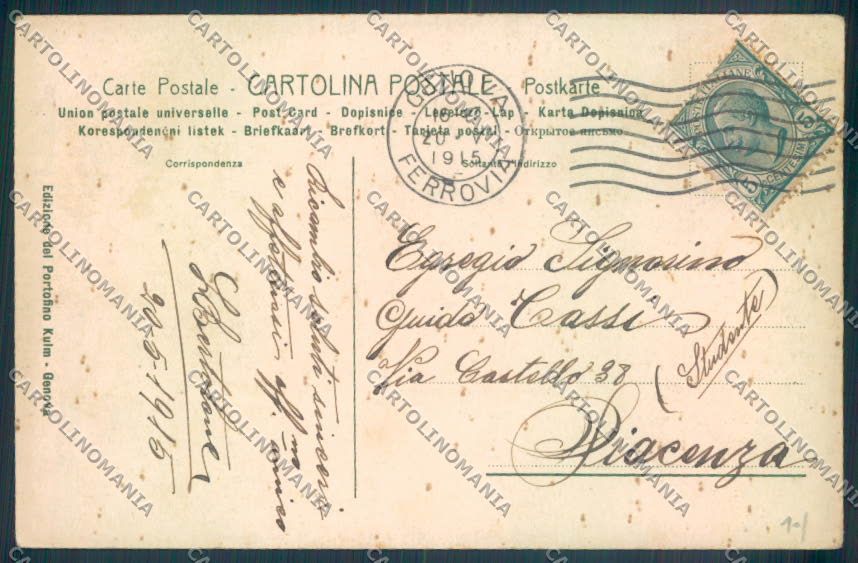 Carte Postale - CARTOLINA POSTALE - Postkarte
Union postale universelle - Post Card - Dopisnice - Levelező-Lap - Karta Dopisnica
Korespondenční listek - Briefkaart - Brefkort - Tarjeta postal - Открытое письмо.
Corrispondenza
Soltanto l'indirizzo
GENOVA
20
1915
FERROVIA
POSTE ITALIANE
CENTESIMI 5
Edizione del Portofino Kulm - Genova
Ricambio saluti sinceri
e affettuosi aff.mo amico
20-5-1915
Egregio Signorino
Guido Cassi
(Studente)
Via Castello 38
Piacenza
10/
CARTOLINOMANIA